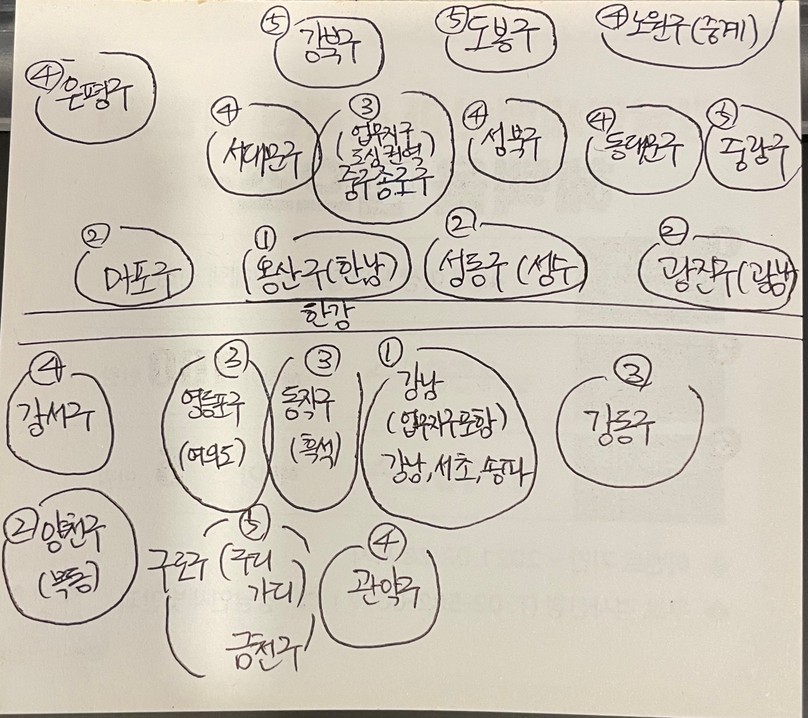 ⑤ 강북구
⑤ 도봉구
④ 노원구 (중계)
④ 은평구
④ 서대문구
③ 업무지구
(도심권역)
중구종로구
④ 성북구
④ 동대문구
⑤ 중랑구
② 마포구
① 용산구 (한남)
② 성동구 (성수)
② 광진구 (광남)
한강
④ 강서구
③ 영등포구
(여의도)
③ 동작구
(흑석)
① 강남
(업무지구포함)
강남, 서초, 송파
③ 강동구
② 양천구
(목동)
⑤ 구로구 (구디
가디)
금천구
④ 관악구